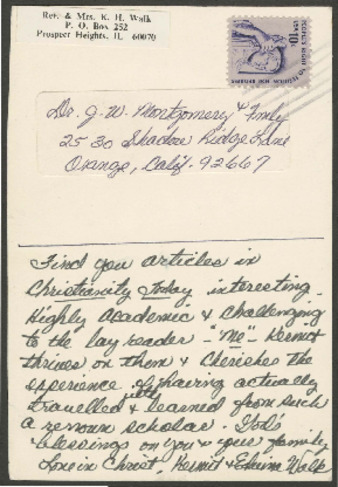 Rev. & Mrs. K. H. Walk
P. O. Box 252
Prospect Heights, IL 60070
PEOPLE'S RIGHT TO PETITION FOR REDRESS
USA 10c
Dr. J. W. Montgomery & Fmly
2530 Shadow Ridge Lane
Orange, Calif. 92667
Find you articles in
Christianity Today interesting
Highly academic & challenging
to the lay reader - "Me" - Kermit
thrives on them & cherishes the
experience of having actually
with
travelled & learned from such
a renown scholar. God's
blessings on you & your family
Love in Christ, Kermit & Walk